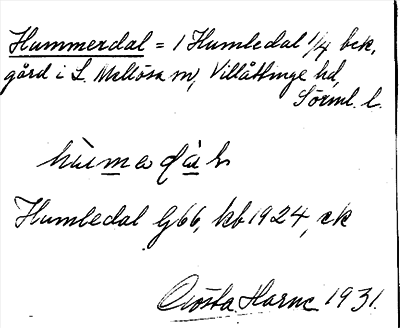 Hummerdal = 1 Humledal 1/4 bek.
gård i L. Mellösa sn, Villåttinge hd,
Sörml. l.
Humledal G66, kb 1924, ek
Gösta Harne 1931.